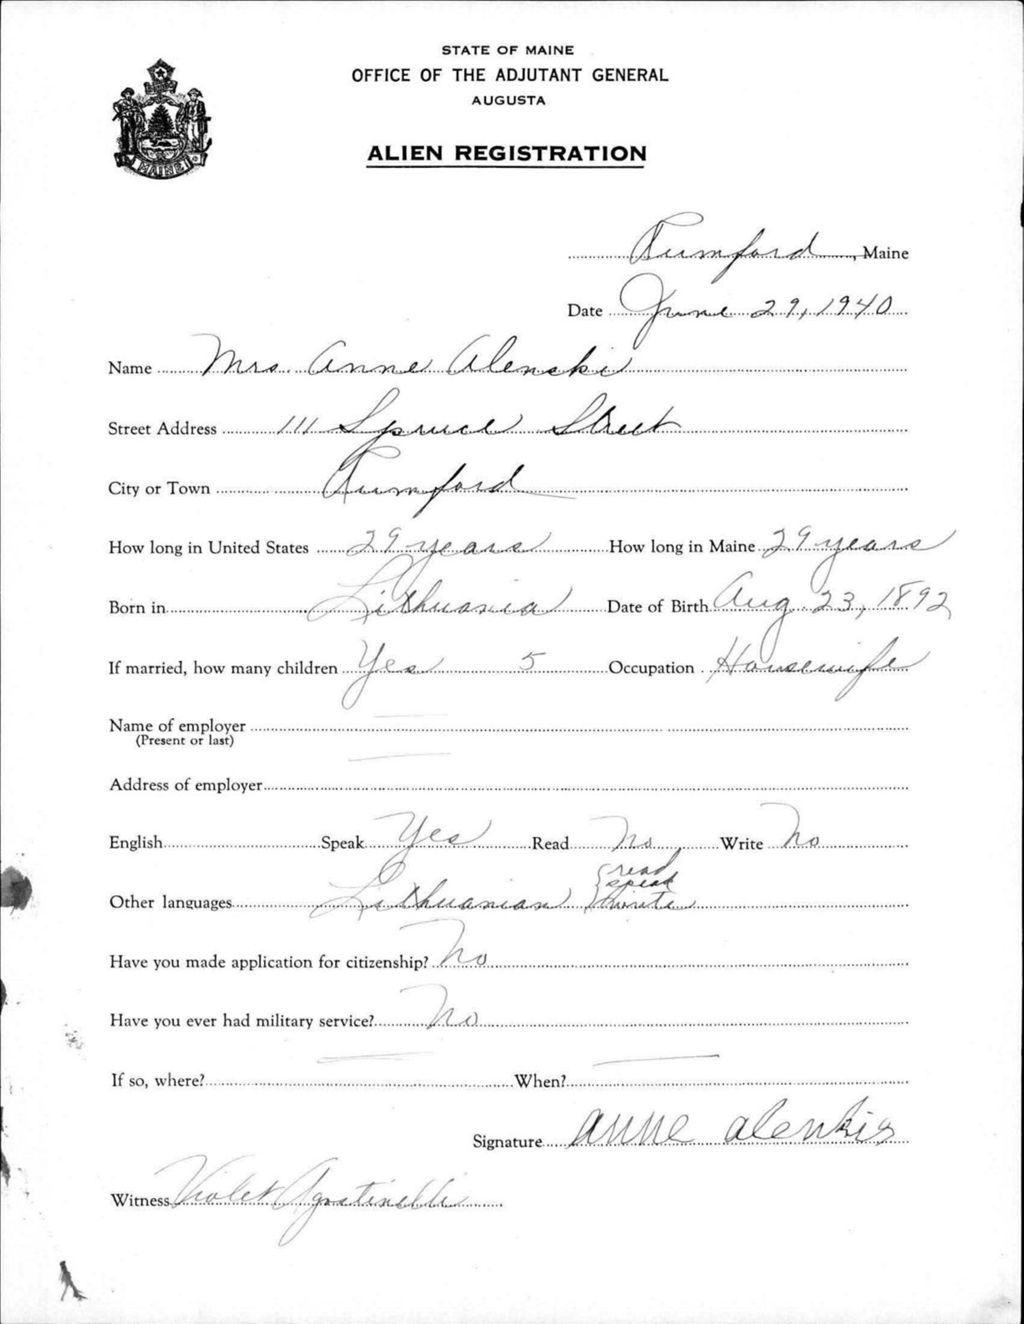 STATE OF MAINE
OFFICE OF THE ADJUTANT GENERAL
AUGUSTA
ALIEN REGISTRATION
MAINE
Rumford, Maine
Date June 29, 1940
Name Mrs. Anne Alenski
Street Address 111 Spruce Street
City or Town Rumford
How long in United States 29 years How long in Maine 29 years
Born in Lithuania Date of Birth Aug 23, 1892
If married, how many children Yes 5 Occupation Housewife
Name of employer
(Present or last)
Address of employer
English Speak Yes Read No Write No
Other languages Lithuanian { read speak write
Have you made application for citizenship? No
Have you ever had military service? No
If so, where? When?
Signature anne alenkis
Witness Violet Agostinelli